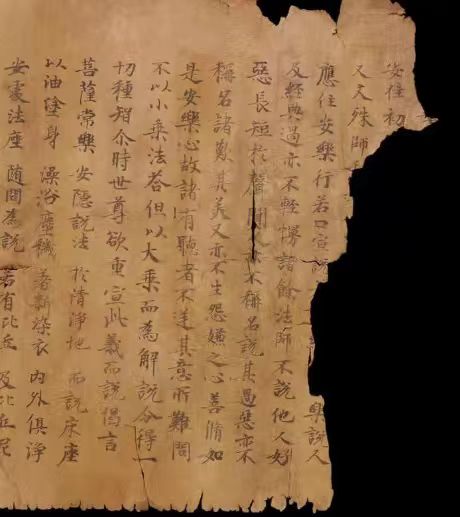 安住初
又文殊師
應住安樂行若口宣說樂說人
及經典過亦不輕慢諸餘法師不說他人好
惡長短於聲聞亦不稱名說其過惡亦不
稱名讚歎其美又亦不生怨嫌之心善脩如
是安樂心故諸有聽者不逆其意所難問
不以小乘法荅但以大乘而為解說令得一
切種智尒時世尊欲重宣此義而說偈言
菩薩常樂 安隱說法 於清淨地 而說床座
以油塗身 澡浴塵穢 著新染衣 內外俱淨
安處法座 随問為說 若有比丘 及比丘尼